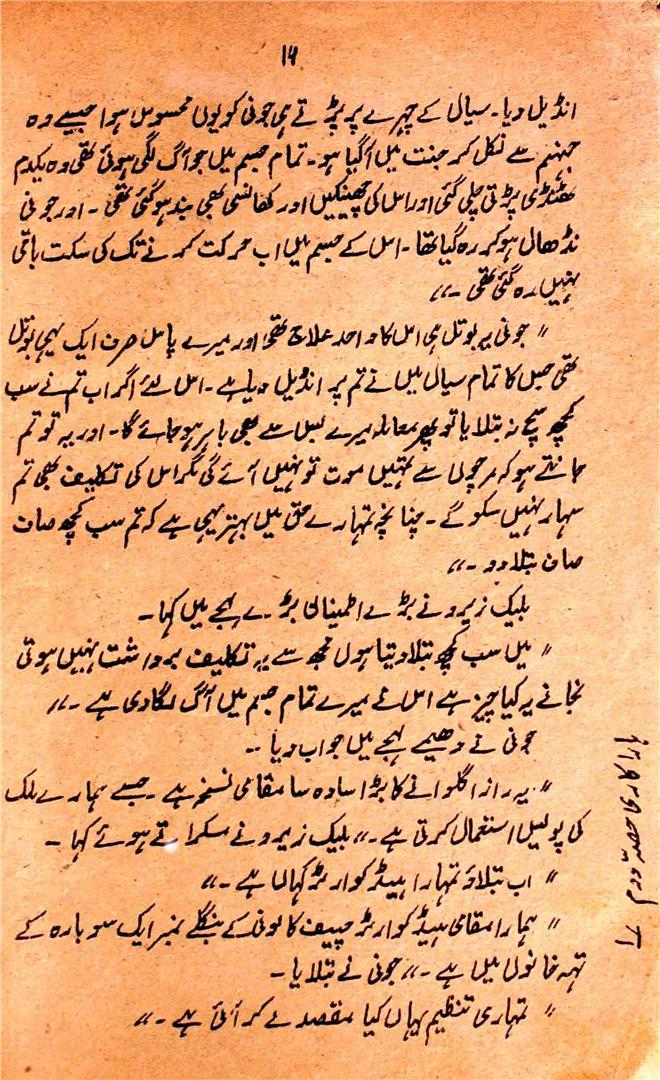 ۱۴
انڈیل دیا۔ سیال کے چہرے پر پڑتے ہی جونی کو یوں محسوس ہوا جیسے وہ
جہنم سے نکل کر جنت میں آگیا ہو۔ تمام جسم میں جو آگ لگی ہوئی تھی وہ یکدم
ٹھنڈی پڑتی چلی گئی اور اس کی چھینکیں اور کھانسی بھی بند ہو گئی تھی۔ اور جونی
نڈھال ہو کر رہ گیا تھا۔ اس کے جسم میں اب حرکت کرنے تک کی سکت باقی
نہیں رہ گئی تھی۔"
" جونی یہ بوتل ہی اس کا واحد علاج تھی اور میرے پاس صرف ایک یہی بوتل
تھی جس کا تمام سیال میں نے تم پر انڈیل دیا ہے۔ اس لئے اگر اب تم نے سب
کچھ سچ نہ بتلایا تو پھر معاملہ میرے بس سے بھی باہر ہو جائے گا۔ اور یہ تو تم
جانتے ہو کہ مرچوں سے تمہیں موت تو نہیں آئے گی مگر اس کی تکلیف بھی تم
سہار نہیں سکو گے۔ چنانچہ تمہارے حق میں بہتر یہی ہے کہ تم سب کچھ صاف
صاف بتلا دو۔"
بلیک زیرو نے بڑے اطمینان بھرے لہجے میں کہا۔
" میں سب کچھ بتلا دیتا ہوں مجھ سے یہ تکلیف برداشت نہیں ہوتی
نجانے یہ کیا چیز ہے اس نے میرے تمام جسم میں آگ لگا دی ہے۔"
جونی نے دھیمے لہجے میں جواب دیا۔
" یہ راز اگلوانے کا بڑا سادہ سا مقامی نسخہ ہے۔ جسے ہمارے ملک
کی پولیس استعمال کرتی ہے۔" بلیک زیرو نے مسکراتے ہوئے کہا۔
" اب بتلاؤ تمہارا ہیڈ کوارٹر کہاں ہے۔"
" ہمارا مقامی ہیڈ کوارٹر چیف کالونی کے بنگلے نمبر ایک سو بارہ کے
تہہ خانوں میں ہے۔" جونی نے بتلایا۔
" تمہاری تنظیم یہاں کیا مقصد لے کر آئی ہے۔"
حصہ دوم